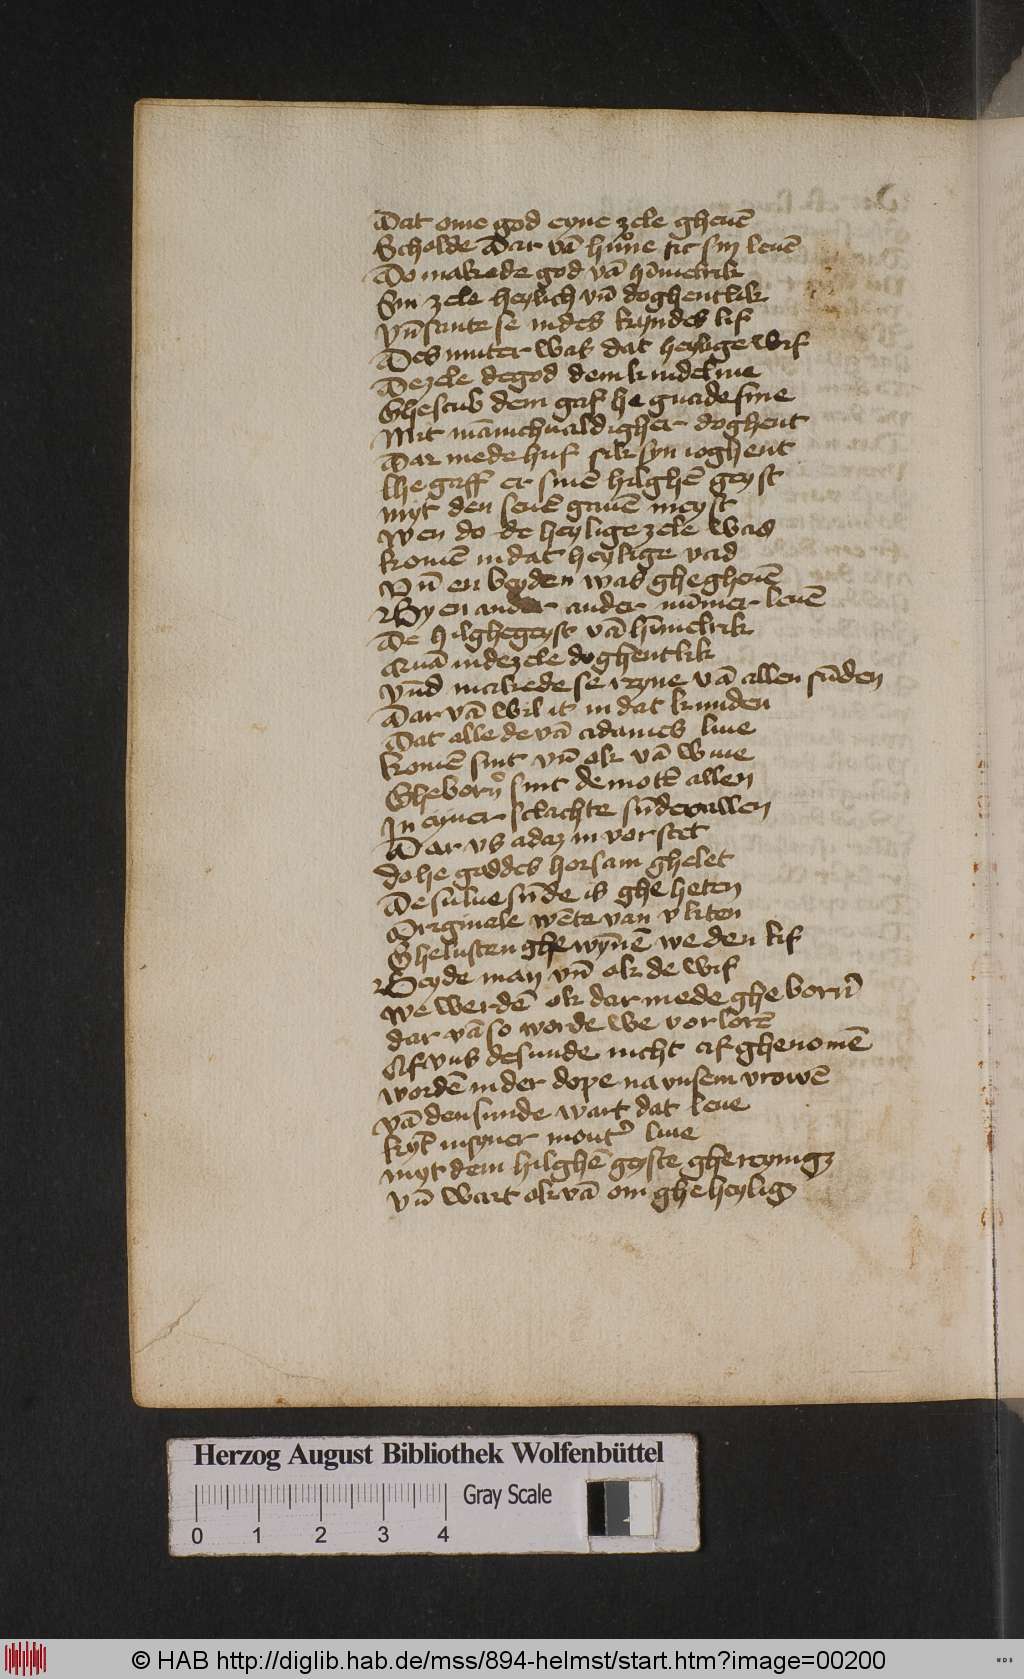 Dat ome god eyne zele gheuē
Scholde Dar vā hūne sic syn leuē
Do makede god vā hīmelrik
Sin zele heylich vn̄ doghentlik
vn̄ sante se in des kyndes lif
Des muter was dat heylige wif
De zele de god dem kindeline
Ghescub dem gaf he gnade sine
Mit mānichualdigher doghent
Dar mede huf sik syn ioghent
he gaff er sinē hilghē geyst
myt den seuē gauē meyst
wen do de heylige zele was
komē in dat heylige vad
Vn̄ en beyden was ghegheuē
By en ander nūmer leuē
De hilghegeyst vā hīmelrik
quā in de zele doghentlik
vn̄d makede se reyne vā allen sūden
Dar vā wil ik in dat kunden
Dat alle de vā adames liue
komē sint vn̄ ok vā wiue
Gheborn̄ sint de motē allen
In eyner slachte sūde vallen
Dar vs adam in vorstet
do he goddes horsam ghelet
De sulue sūde is gheheten
Originale wēte van vliten
Ghelusten ghewȳnē we den lif
Beyde man vn̄ ok de wif
we werdē ok dar mede gheborn̄
dar vā so worde we vorlorē
Af vns de sunde nicht af ghenomē
wordē in der dope na vnsem vrowē
vā den sunde wart dat leue
kyt in syner mouter liue
myt dem hilghē geyste ghereynigz
vn̄ wart ok vā om gheheylig
Herzog August Bibliothek Wolfenbüttel
Gray Scale
0 1 2 3 4
© HAB http://diglib.hab.de/mss/894-helmst/start.htm?image=00200